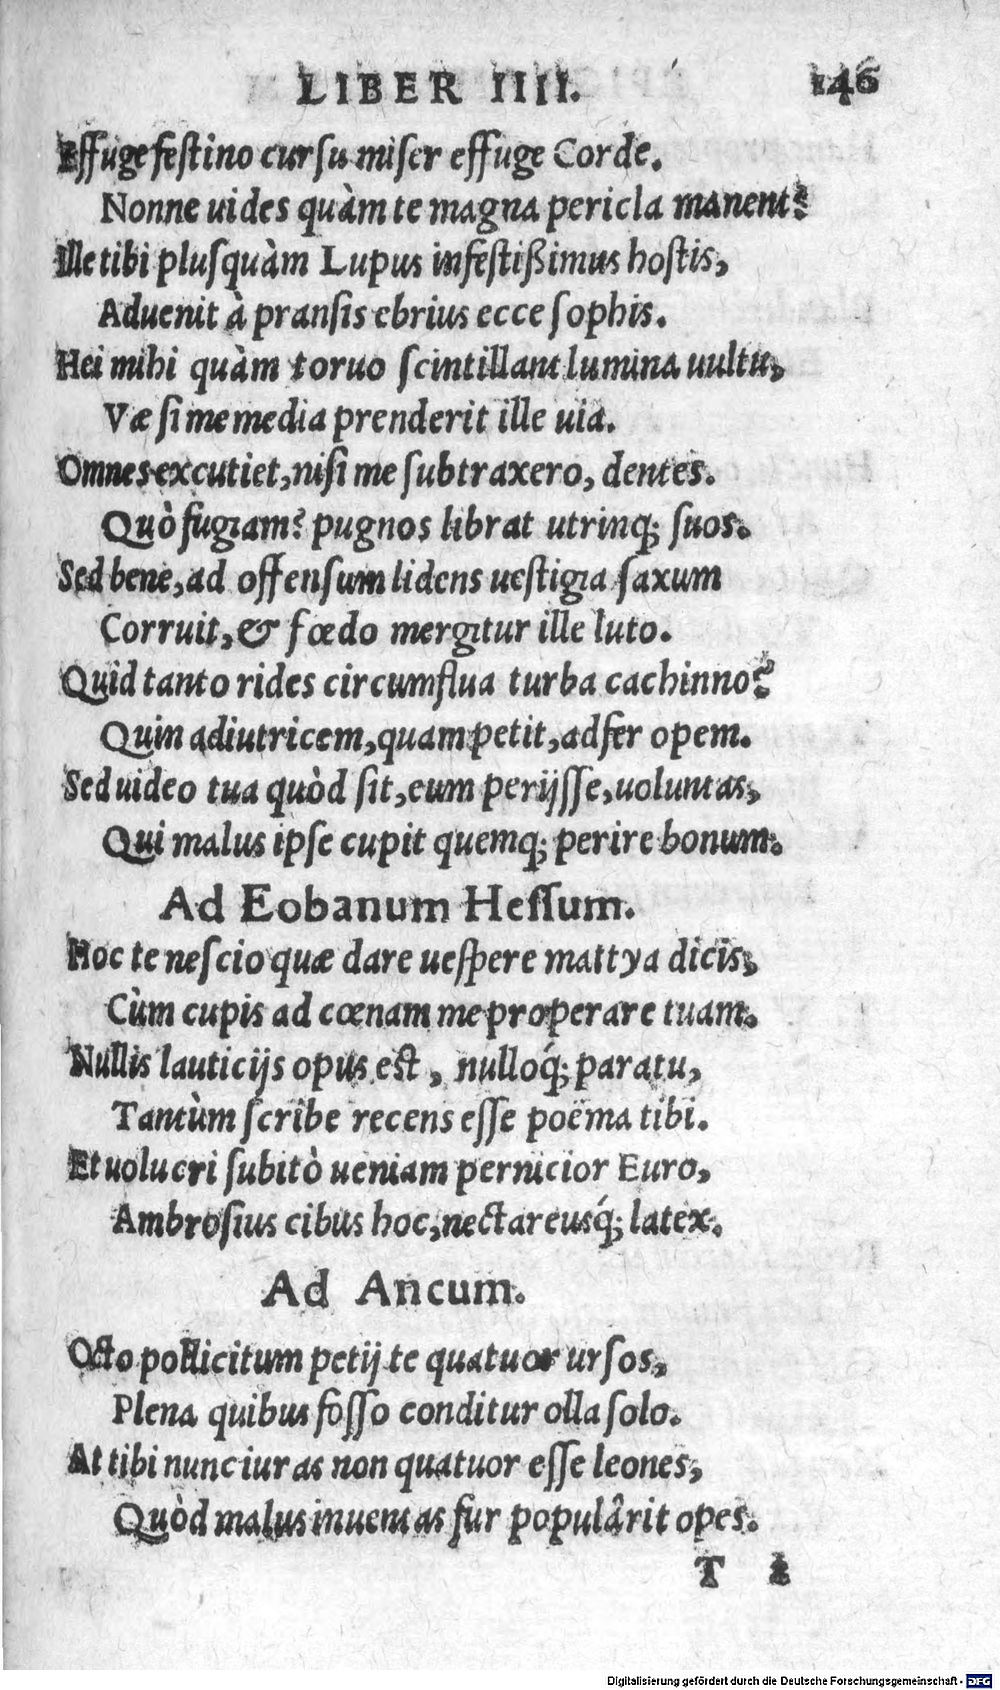 LIBER IIII. 146
Effuge festino cursu miser effuge Corde.
Nonne uides quàm te magna pericla manent?
Ille tibi plusquàm Lupus infestißimus hostis,
Aduenit à pransis ebrius ecce sophis.
Hei mihi quàm toruo scintillant lumina uultu,
Væ si me media prenderit ille uia.
Omnes excutiet, nisi me subtraxero, dentes.
Quò fugiam? pugnos librat utrinq; suos.
Sed bene, ad offensum lidens uestigia saxum
Corruit, & fœdo mergitur ille luto.
Quid tanto rides circumflua turba cachinno?
Quin adiutricem, quam petit, adfer opem.
Sed uideo tua quòd sit, eum perijsse, uoluntas,
Qui malus ipse cupit quemq; perire bonum.
Ad Eobanum Hessum.
Hoc te nescio quæ dare uespere mattya dicis,
Cùm cupis ad cœnam me properare tuam.
Nullis lauticijs opus est, nulloq́; paratu,
Tantùm scribe recens esse poëma tibi.
Et uolucri subitò ueniam pernicior Euro,
Ambrosius cibus hoc, nectareusq́; latex.
Ad Ancum.
Octo pollicitum petij te quatuor ursos,
Plena quibus fosso conditur olla solo.
At tibi nunc iuras non quatuor esse leones,
Quòd malus inuentas fur populârit opes.
T 2
Digitalisierung gefördert durch die Deutsche Forschungsgemeinschaft - DFG